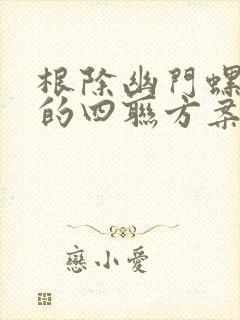 根除幽門螺
的四聯方案
戀小愛